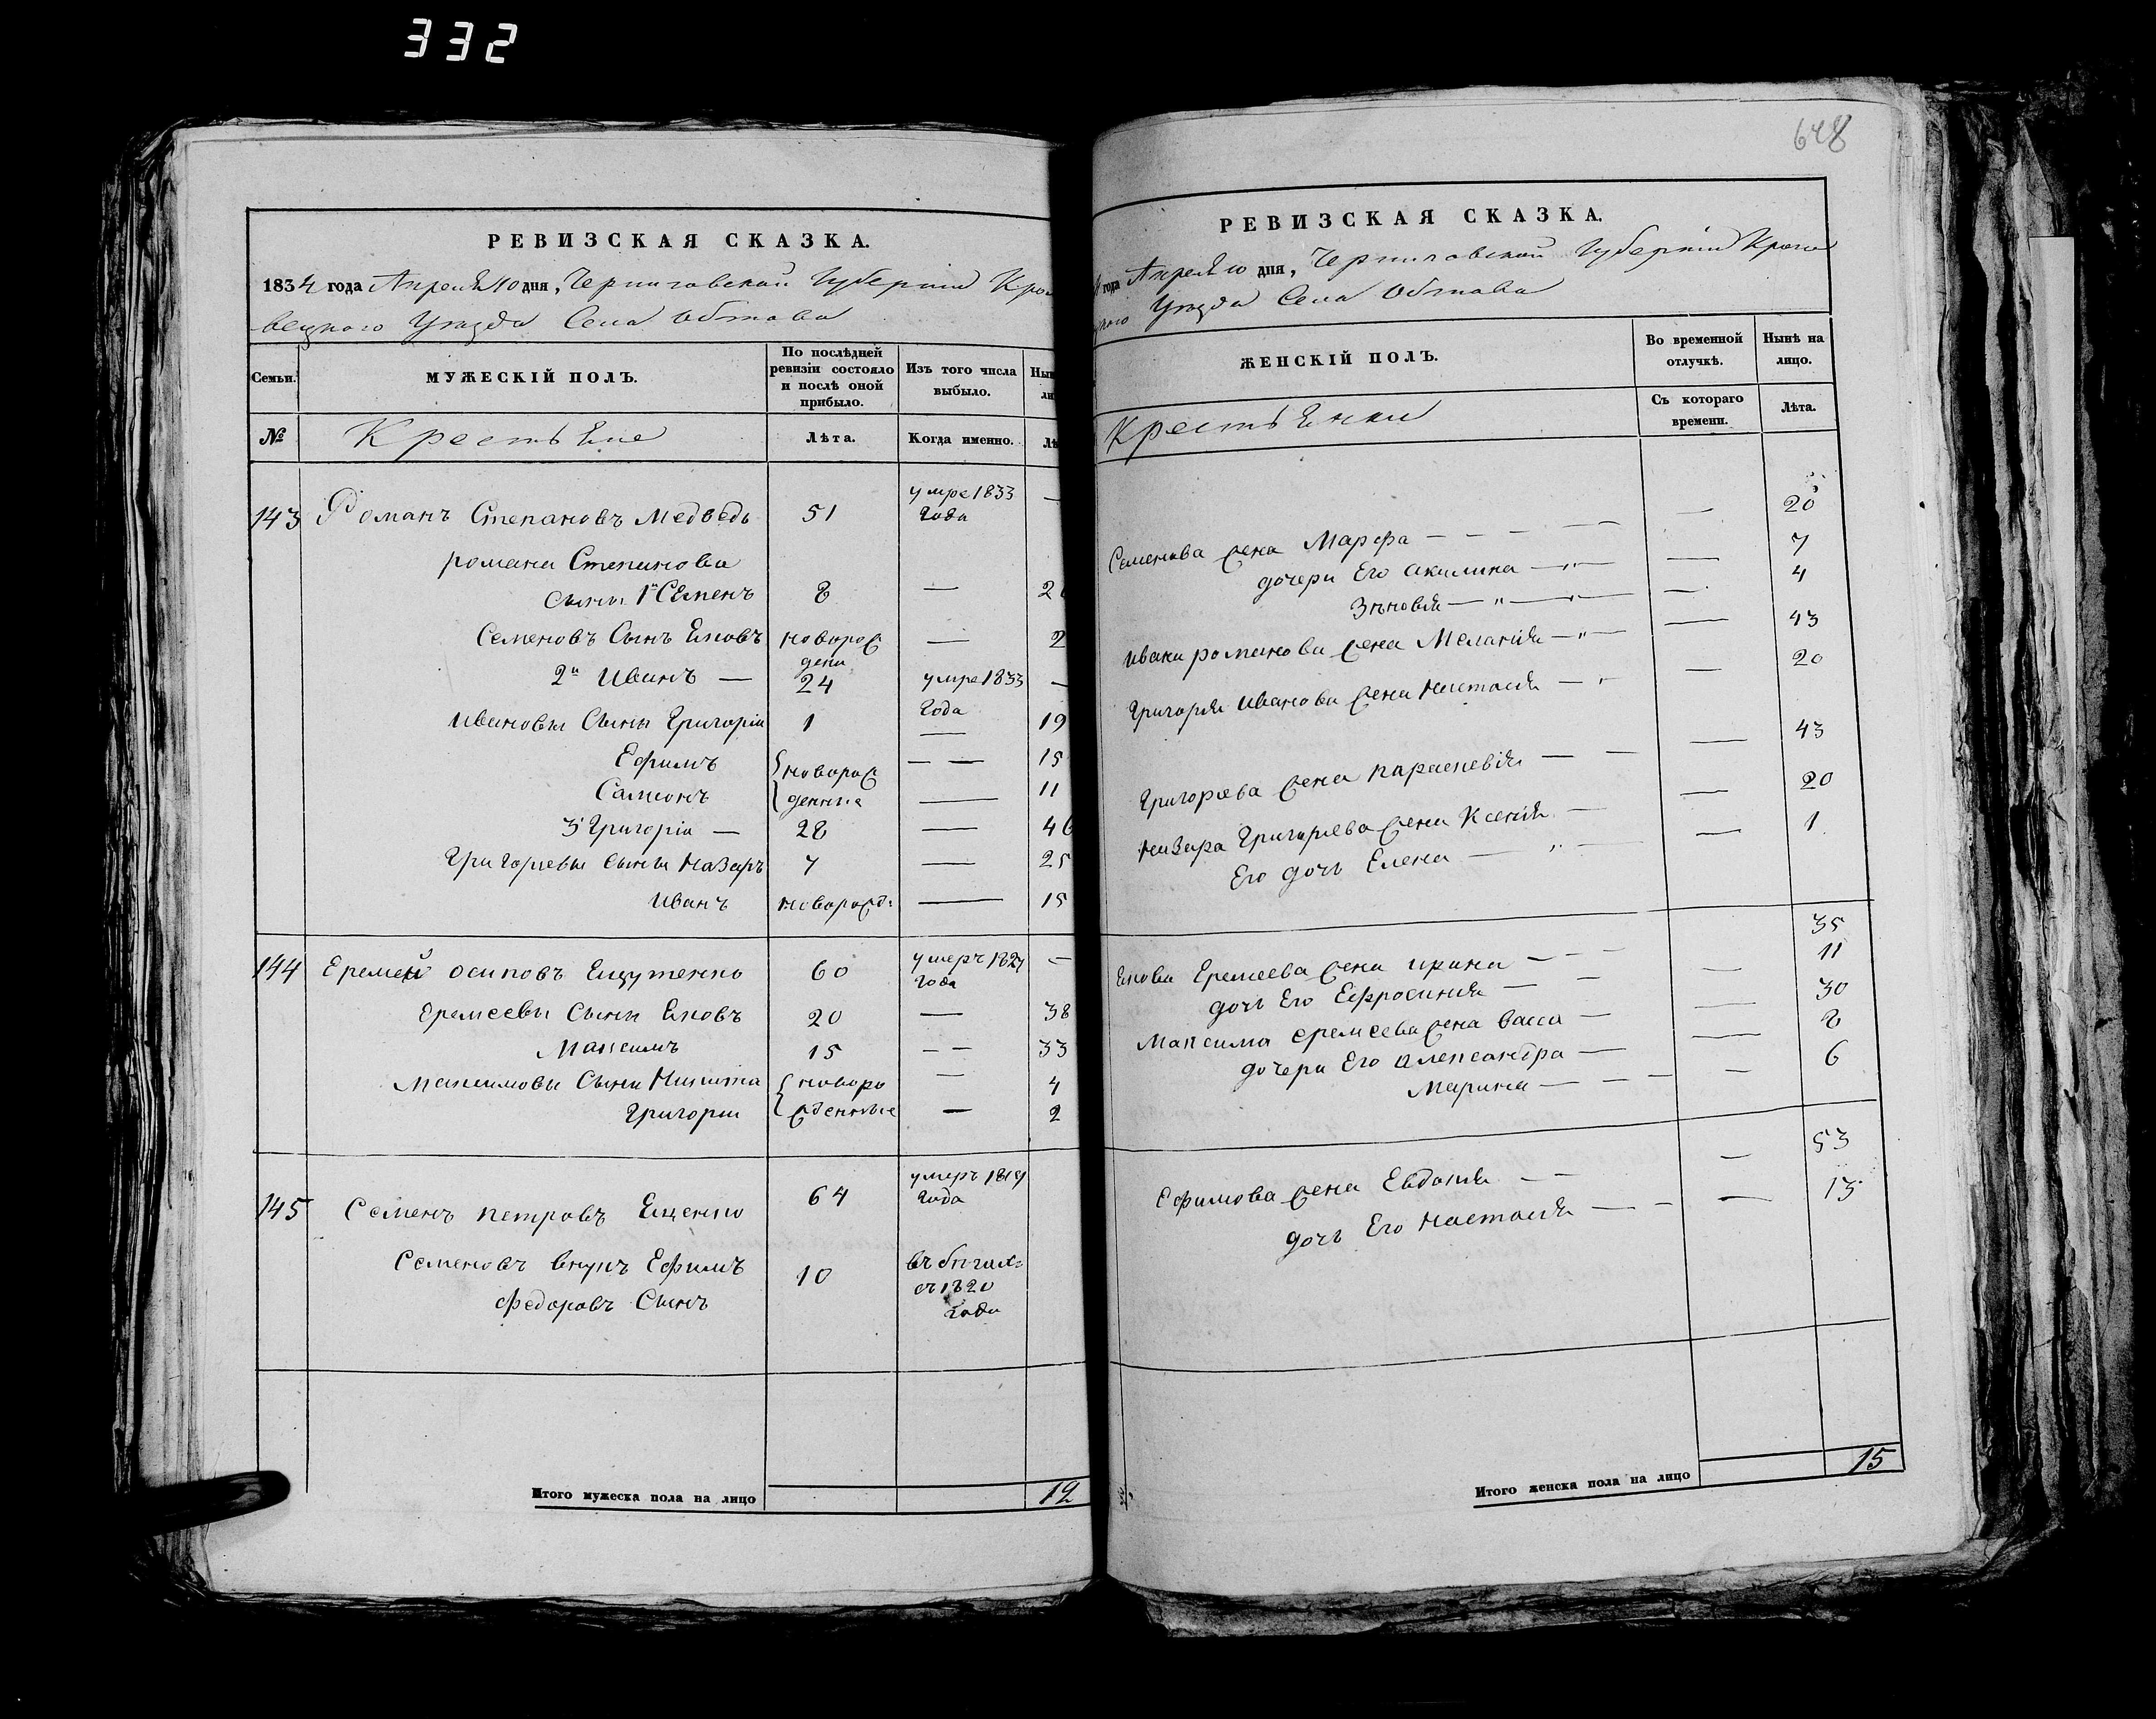 332
РЕВИЗСКАЯ СКАЗКА.
1834 года Апреля 10 дня, Черниговской Губерніи Кро
вецкого Уезда Села Обтова
Семьи.
МУЖЕСКІЙ ПОЛЪ.
По послѣдней ревизіи состояло и послѣ оной прибыло.
Изъ того числа выбыло.
№
Крестьяне
Лѣта.
Когда именно.
143 Романъ Степановъ Медведь 51 умре 1833 года —
романа Степанова
сыны 1й Семенъ 8 — 2
Семеновъ сынъ Яковъ новорож дени — 2
2й Иванъ — 24 умре 1833 года —
Ивановы сыны Григорій 1 — 19
Ефимъ новорож — — 15
Самсонъ денные — 11
3й Григоріи — 28 — 46
Григорьевы сыны Назаръ 7 — 25
Иванъ новорожд: — 15
144 Еремей осиповъ Ещутенко 60 умеръ 1827 года —
Еремеевы сыны Яковъ 20 — 38
Максимъ 15 — — 33
Максимовы сыны Никита новоро — 4
Григории жденные — 2
145 Семенъ петровъ Ещенко 64 умеръ 1819 года
Семеновъ внукъ Ефимъ 10 въ бегах: съ 1820 года
Федоровъ сынъ
Итого мужеска пола на лицо 12
648
РЕВИЗСКАЯ СКАЗКА.
года Апреля 10 дня, Черниговской Губерніи Кроле
Уезда Села Обтова
ЖЕНСКІЙ ПОЛЪ.
Во временной отлучкѣ.
Нынѣ на лицо.
Крестьянки
Съ котораго времени.
Лѣта.
Семенова жена Марфа — — — — 20
дочери Его акилина — „ — — 7
Зѣновія — „ — „ — — 4
Ивана романова жена Меланія — „ — — 43
Григорія Иванова жена Настасія — „ — 20
Григорьева жена параскевія — — — 43
Назара Григорьева жена Ксенія — — 20
Его дочь Елена — „ — — 1
Якова Еремеева жена ирина — — — 35
дочь Его Ефросинія — — — 11
Максима еремеева жена Васса — — 30
дочери Его александра — — 8
Марина — — — — 6
Ефимова жена Евдокія — — — 53
дочь Его Настасія — — — 13
Итого женска пола на лицо 15